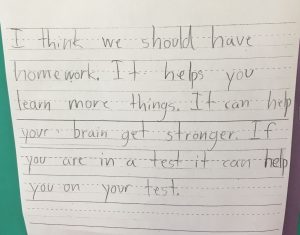 I think we should have
homework. It helps you
learn more things. It can help
your brain get stronger. If
you are in a test it can help
you on your test.